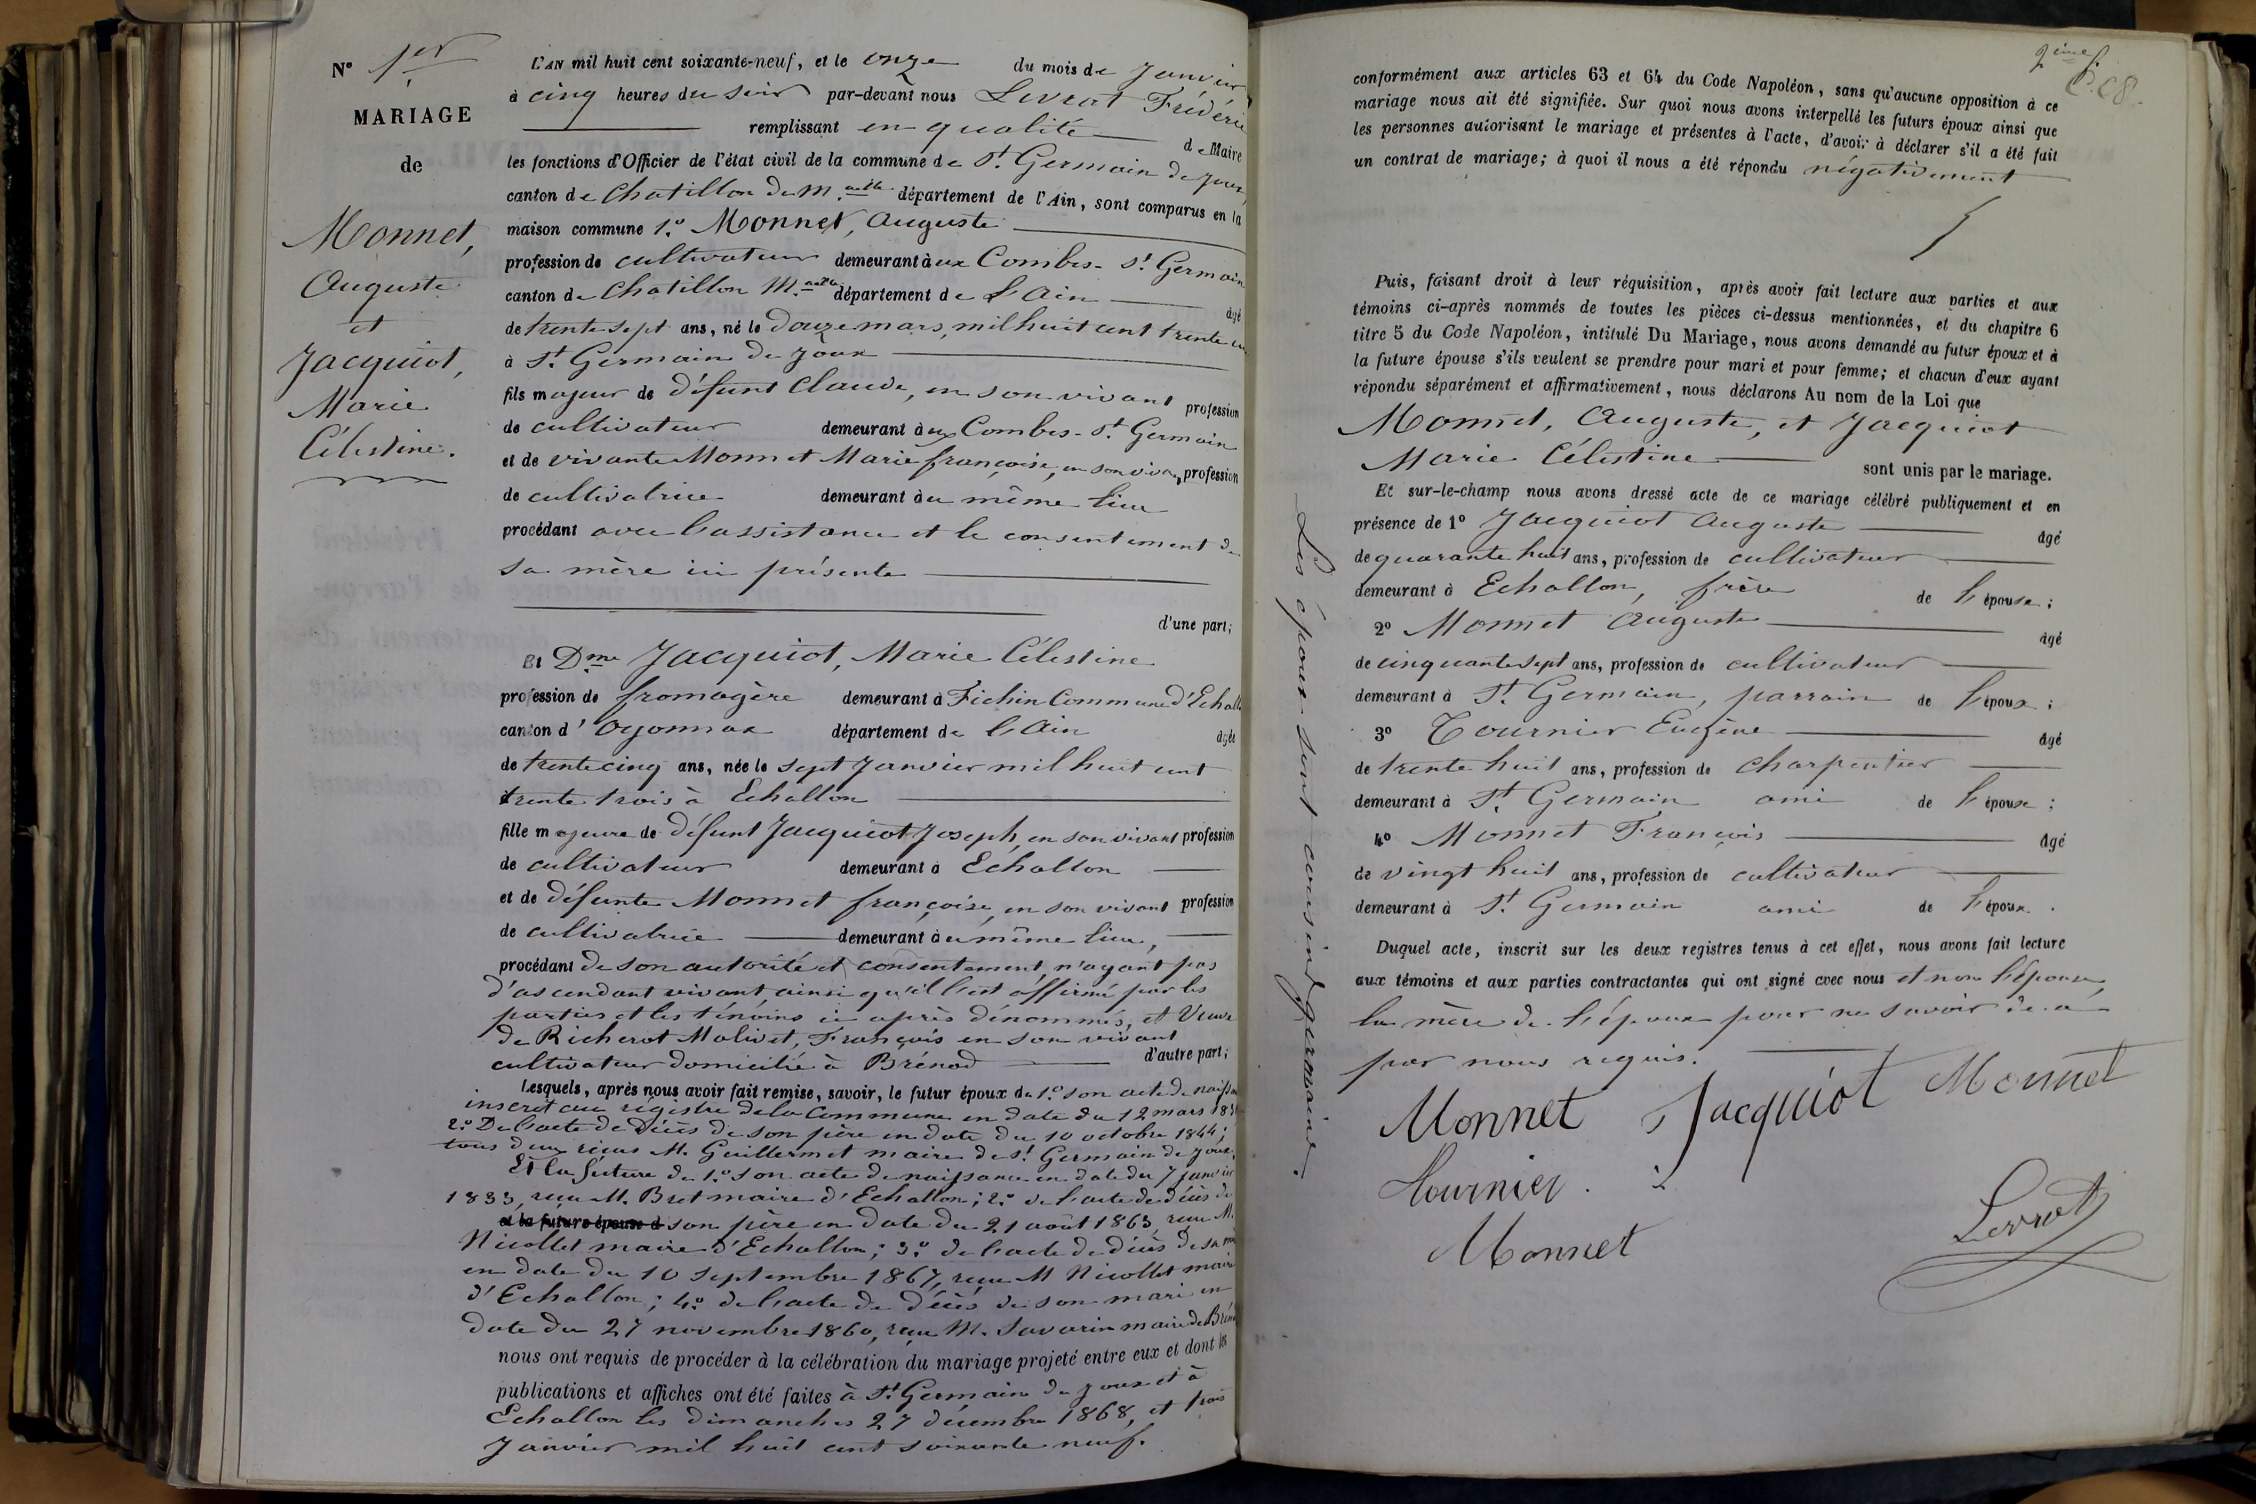 N° 1er
MARIAGE
de
Monnet,
Auguste
et
Jacquiot,
Marie
Célestine.
L'AN mil huit cent soixante-neuf, et le onze du mois de Janvier
à cinq heures du soir par-devant nous Levrat Frédéric
remplissant en qualité de Maire
les fonctions d'Officier de l'état civil de la commune de St. Germain de Joux,
canton de Chatillon de M. département de l'Ain, sont comparus en la
maison commune 1.° Monnet, Auguste
profession de cultivateur demeurant à ux Combes - St. Germain
canton de Chatillon M. département de L'Ain âgé
de trente sept ans, né le Douze mars, mil huit cent trente un
à St. Germain de Joux
fils majeur de défunt Claude, en son vivant profession
de cultivateur demeurant à ux Combes - St. Germain
et de vivante Monnet Marie françoise, en son vivant, profession
de cultivatrice demeurant à u même lieu
procédant avec l'assistance et le consentement de
sa mère ici présente
d'une part;
Et Dme Jacquiot, Marie Célestine
profession de fromagère demeurant à Fichin Commune d'Echallon
canton d' Oyonnax département de L'Ain âgée
de trente cinq ans, née le sept Janvier mil huit cent
trente trois à Echallon
fille majeure de défunt Jacquiot Joseph, en son vivant profession
de cultivateur demeurant à Echallon
et de défunte Monnet françoise, en son vivant profession
de cultivatrice demeurant à u même lieu,
procédant de son autorité et consentement, n'ayant pas
d'ascendant vivant, ainsi qu'il l'est affirmé par les
parties et les témoins ci après dénommés, et Veuve
de Richerot Molivet, François en son vivant
cultivateur domicilié à Brénod d'autre part;
Lesquels, après nous avoir fait remise, savoir, le futur époux de 1.° son acte de naissance
inscrit au régistre de la Commune en date du 12 mars 1831
2.° De l'acte de décès de son père en date du 10 octobre 1844;
tous deux reçus M. Guillermet maire de St. Germain de Joux.
Et la future de 1.° son acte de naissance en date du 7 janvier
1833, reçu M. Bret maire d'Echallon; 2.° de l'acte de décès de
et la future épouse d son père en date du 21 août 1863, reçu M.
Nicollet maire d'Echallon; 3.° de l'acte de décès de sa mère
en date du 10 septembre 1867, reçu M Nicollet maire
d'Echallon; 4.° de l'acte de décès de son mari en
date du 27 novembre 1860, reçu M. Savarin maire de Brénod
nous ont requis de procéder à la célébration du mariage projeté entre eux et dont les
publications et affiches ont été faites à St. Germain de Joux et à
Echallon les dimanches 27 décembre 1868, et trois
Janvier mil huit cent soixante neuf.
Les époux sont cousins germains.
2ème f.
conformément aux articles 63 et 64 du Code Napoléon, sans qu'aucune opposition à ce
mariage nous ait été signifiée. Sur quoi nous avons interpellé les futurs époux ainsi que
les personnes autorisant le mariage et présentes à l'acte, d'avoir à déclarer s'il a été fait
un contrat de mariage; à quoi il nous a été répondu négativement
Puis, faisant droit à leur réquisition, après avoir fait lecture aux parties et aux
témoins ci-après nommés de toutes les pièces ci-dessus mentionnées, et du chapitre 6
titre 5 du Code Napoléon, intitulé Du Mariage, nous avons demandé au futur époux et à
la future épouse s'ils veulent se prendre pour mari et pour femme; et chacun d'eux ayant
répondu séparément et affirmativement, nous déclarons Au nom de la Loi que
Monnet, Auguste, et Jacquiot
Marie Célestine sont unis par le mariage.
Et sur-le-champ nous avons dressé acte de ce mariage célébré publiquement et en
présence de 1° Jacquiot Auguste âgé
de quarante huit ans, profession de cultivateur
demeurant à Echallon, frère de l'épouse;
2° Monnet Auguste âgé
de cinquante sept ans, profession de cultivateur
demeurant à St. Germain, parrain de l'époux;
3° Tournier Eugène âgé
de trente huit ans, profession de charpentier
demeurant à St. Germain ami de l'époux;
4° Monnet François âgé
de vingt huit ans, profession de cultivateur
demeurant à St. Germain ami de l'époux.
Duquel acte, inscrit sur les deux registres tenus à cet effet, nous avons fait lecture
aux témoins et aux parties contractantes qui ont signé avec nous et non l'épouse,
la mère de l'époux pour ne savoir de ce
par nous requis.
Monnet Jacquiot Monnet
Tournier
Levrat
Monnet